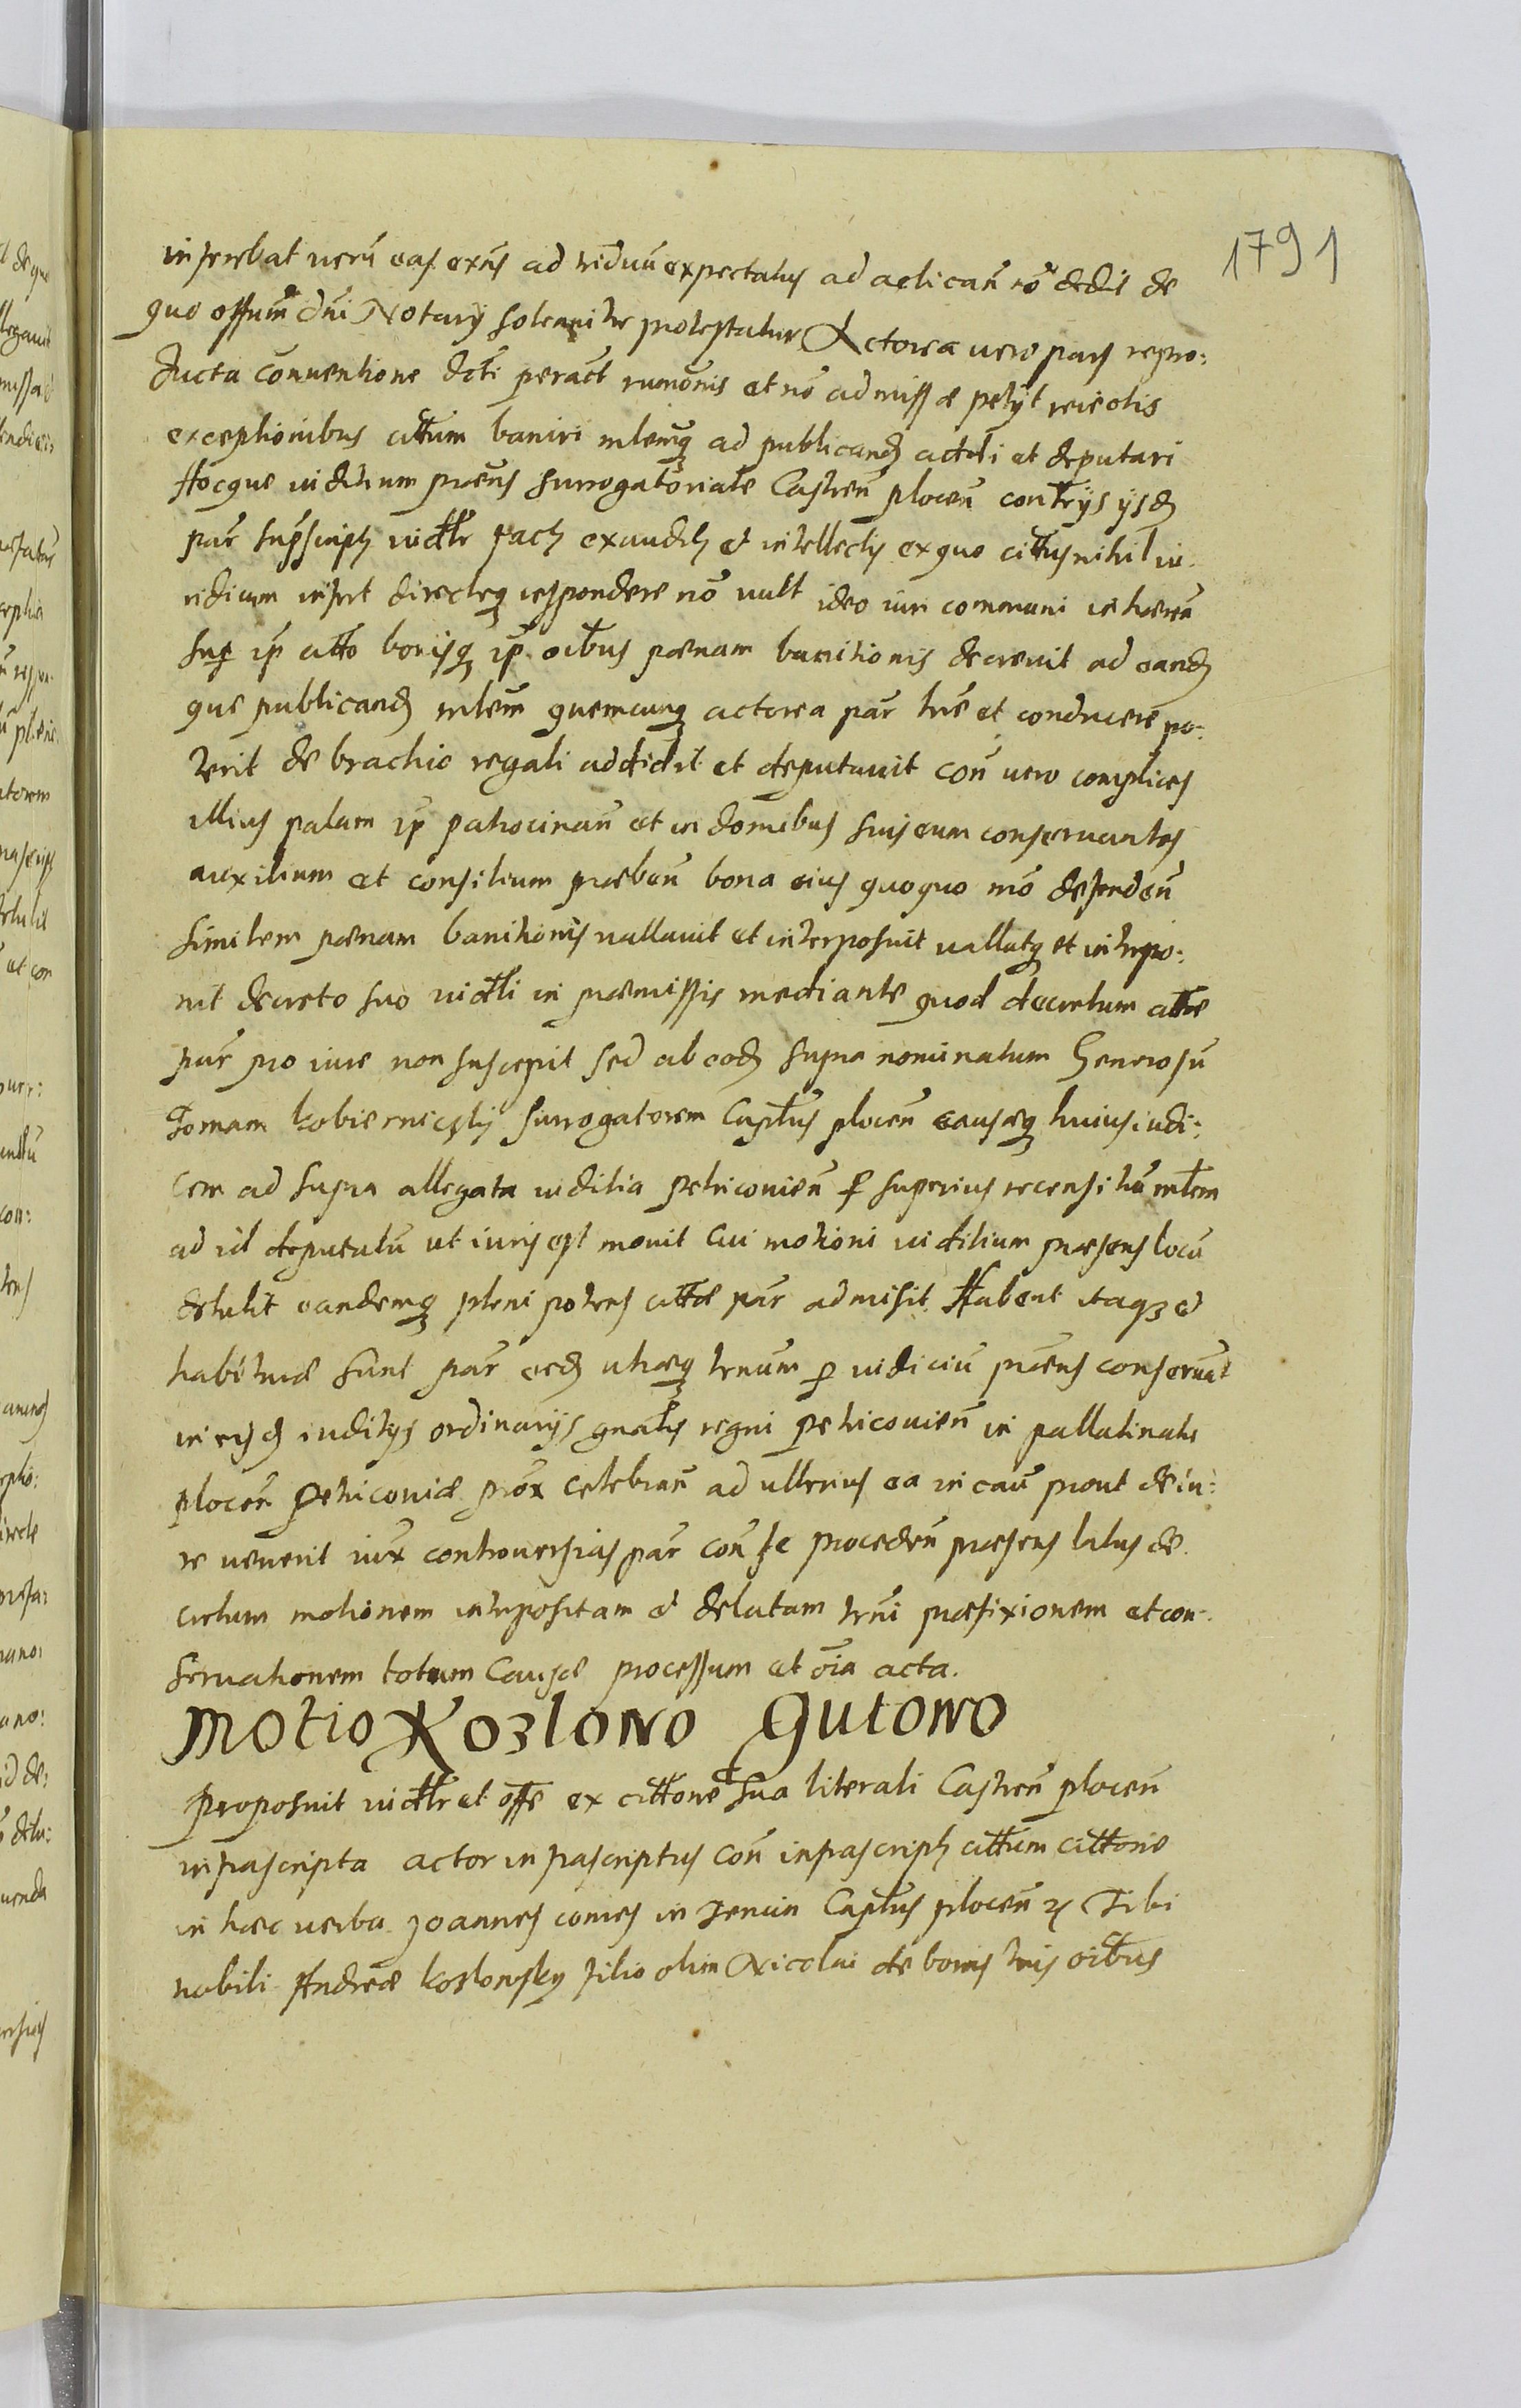 1791
inferebat verū eas exñs ad triduū expectatus ad aclicañ nō dedit de
quo offum dñi Notarÿ solenniter protestatur Actorea vero pars repro:
ducta conventione dcti peract rumōnis et nō admissæ petÿt reiectis
exceptionibus cittum baniri mlemq ad publicand addi et deputari
Hocque iuditium præns Surrogatoriale Castreñ ploceñ contrijs ijsd
par suprscript iudtlr fact exaudit et intellectis ex quo cittus nihil iu
ridicum infert directeq respondere nō vult ideo iuri communi inhæreñ
sup ip citto bonisq ip oibus pænam banitionis decrevit ad eand
que publicand mlem quemcunq actorea par hre et conducere po:
terit de brachio regali addidit et deputavit con vero complices
illius palam ip patrocinañ et in domibus suis eum conservantes
auxilium et consilium præbeñ bona eius quoquo mō defendeñ
similem pænam banitionis vallavit et interposuit vallatq et interpo:
nit decreto suo iudtli in præmissis mediante quod decretum cittæ
par pro iure non suscepit sed ab eod supra nominatum Generosū
Tomam kobiernicski surrogatorem Captus ploceñ causæq huius iudi:
cem ad supra allegata iuditia petricovieñ p superius recensitū mlem
ad id deputatū ut iuris est movit Cui motioni iuditium præsens locū
detulit eandemq plenipotens cittæ par admisit Habent itaq3 et
habituræ sunt par eed utræq trnum p iudiciū præns conservat
in eisd iuditÿs ordinariÿs gnalis regni petricovieñ in pallatinatu
ploceñ Petricoviæ prox celebrañ ad ulterius ea in cau prout de iu:
re venerit iux controversias par con se procedeñ præsens latus de
cretum motionem interpositam et delatam trni præfixionem et con:
servationem totum Causæ processum et oia acta.
Motio Kozlowo Gutowo
Proposuit iudtlr et offe ex cittone sua literali Castreñ ploceñ
infrascripta actor infrascriptus con infrascript cittum cittonie
in hæc verba Joannes comes in Tencin Captus ploceñ Tibi
nobili Andreæ kozlowsky filio olim Nicolai de bonis tuis oibus